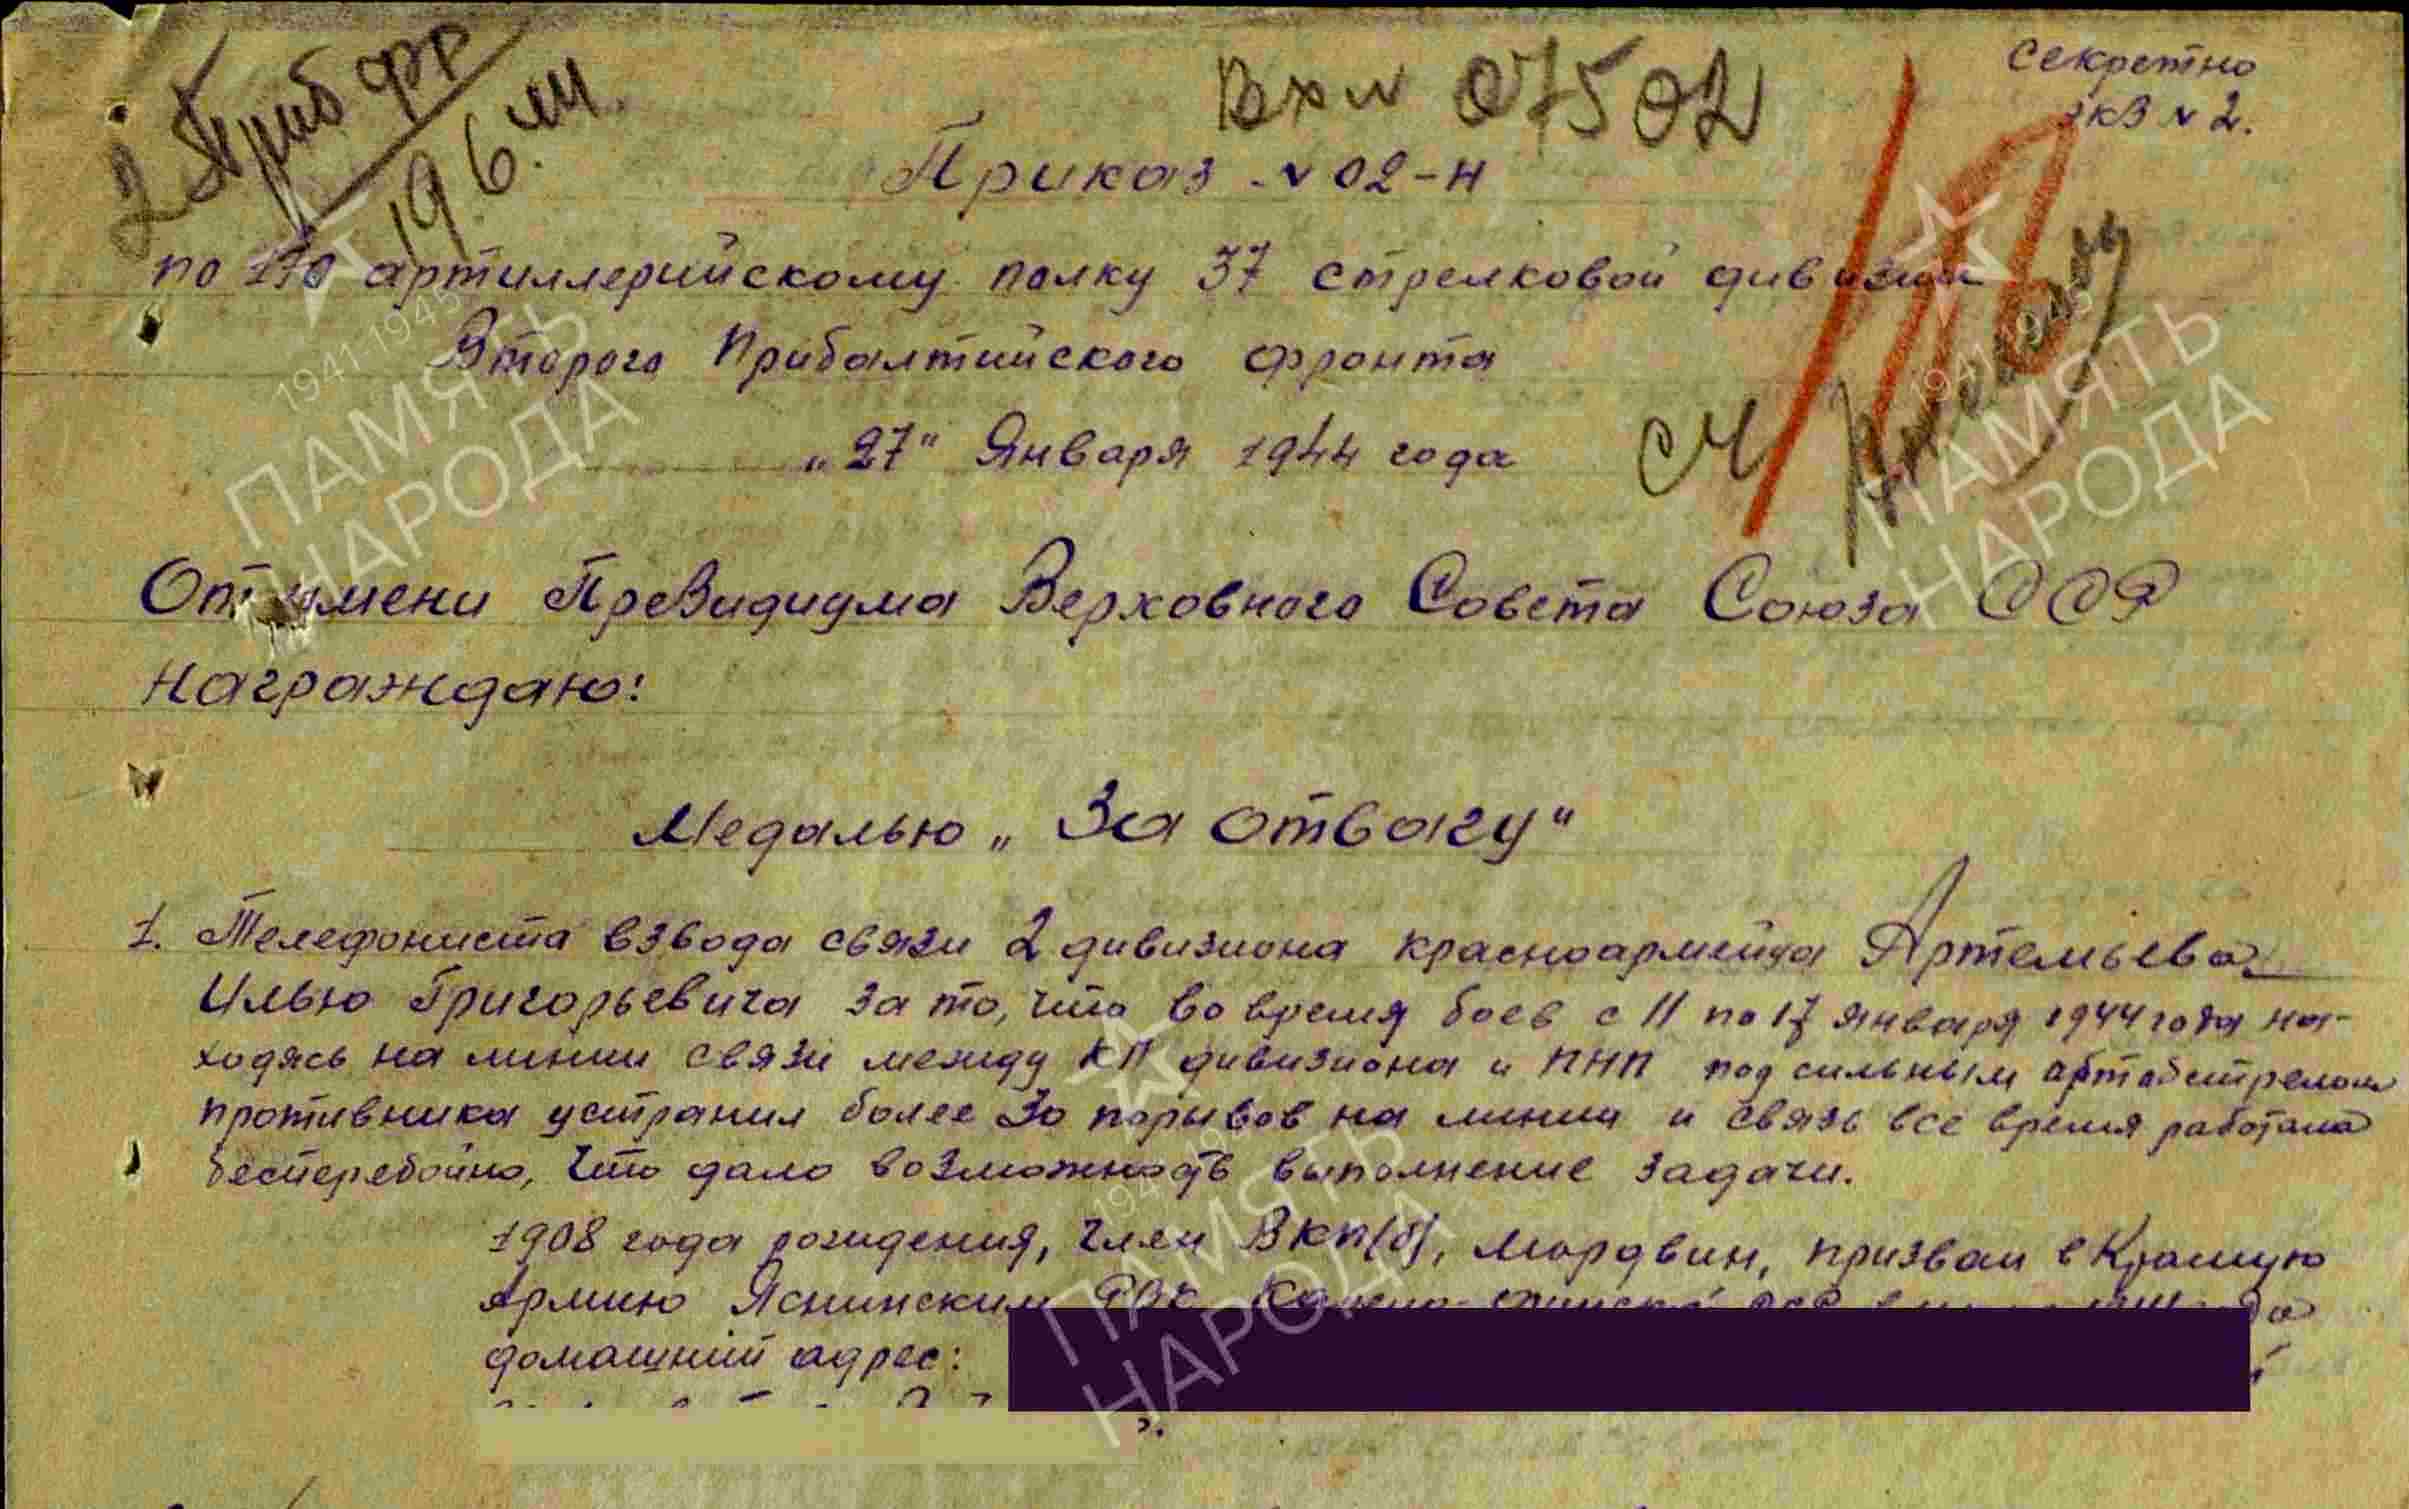 2 Приб фр
196.
Вх № 07502
Секретно
экз № 2.
Приказ № 02-н
по 170 артиллерийскому полку 37 стрелковой дивизии
Второго Прибалтийского фронта
„27“ Января 1944 года
От имени Президиума Верховного Совета Союза ССР
награждаю:
Медалью „За отвагу“
1. Телефониста взвода связи 2 дивизиона красноармейца Артемьева
Илью Григорьевича за то, что во время боев с 11 по 17 января 1944 года на-
ходясь на линии связи между КП дивизиона и ПНП под сильным артобстрелом
противника устранил более 30 порывов на линии и связь все время работала
бесперебойно, что дало возможность выполнение задачи.
1908 года рождения, член ВКП(б), мордвин, призван в Красную
Армию Яснинским РВК
домашний адрес:
1941-1945
ПАМЯТЬ
НАРОДА
1941-1945
ПАМЯТЬ
НАРОДА
ПАМЯТЬ
НАРОДА